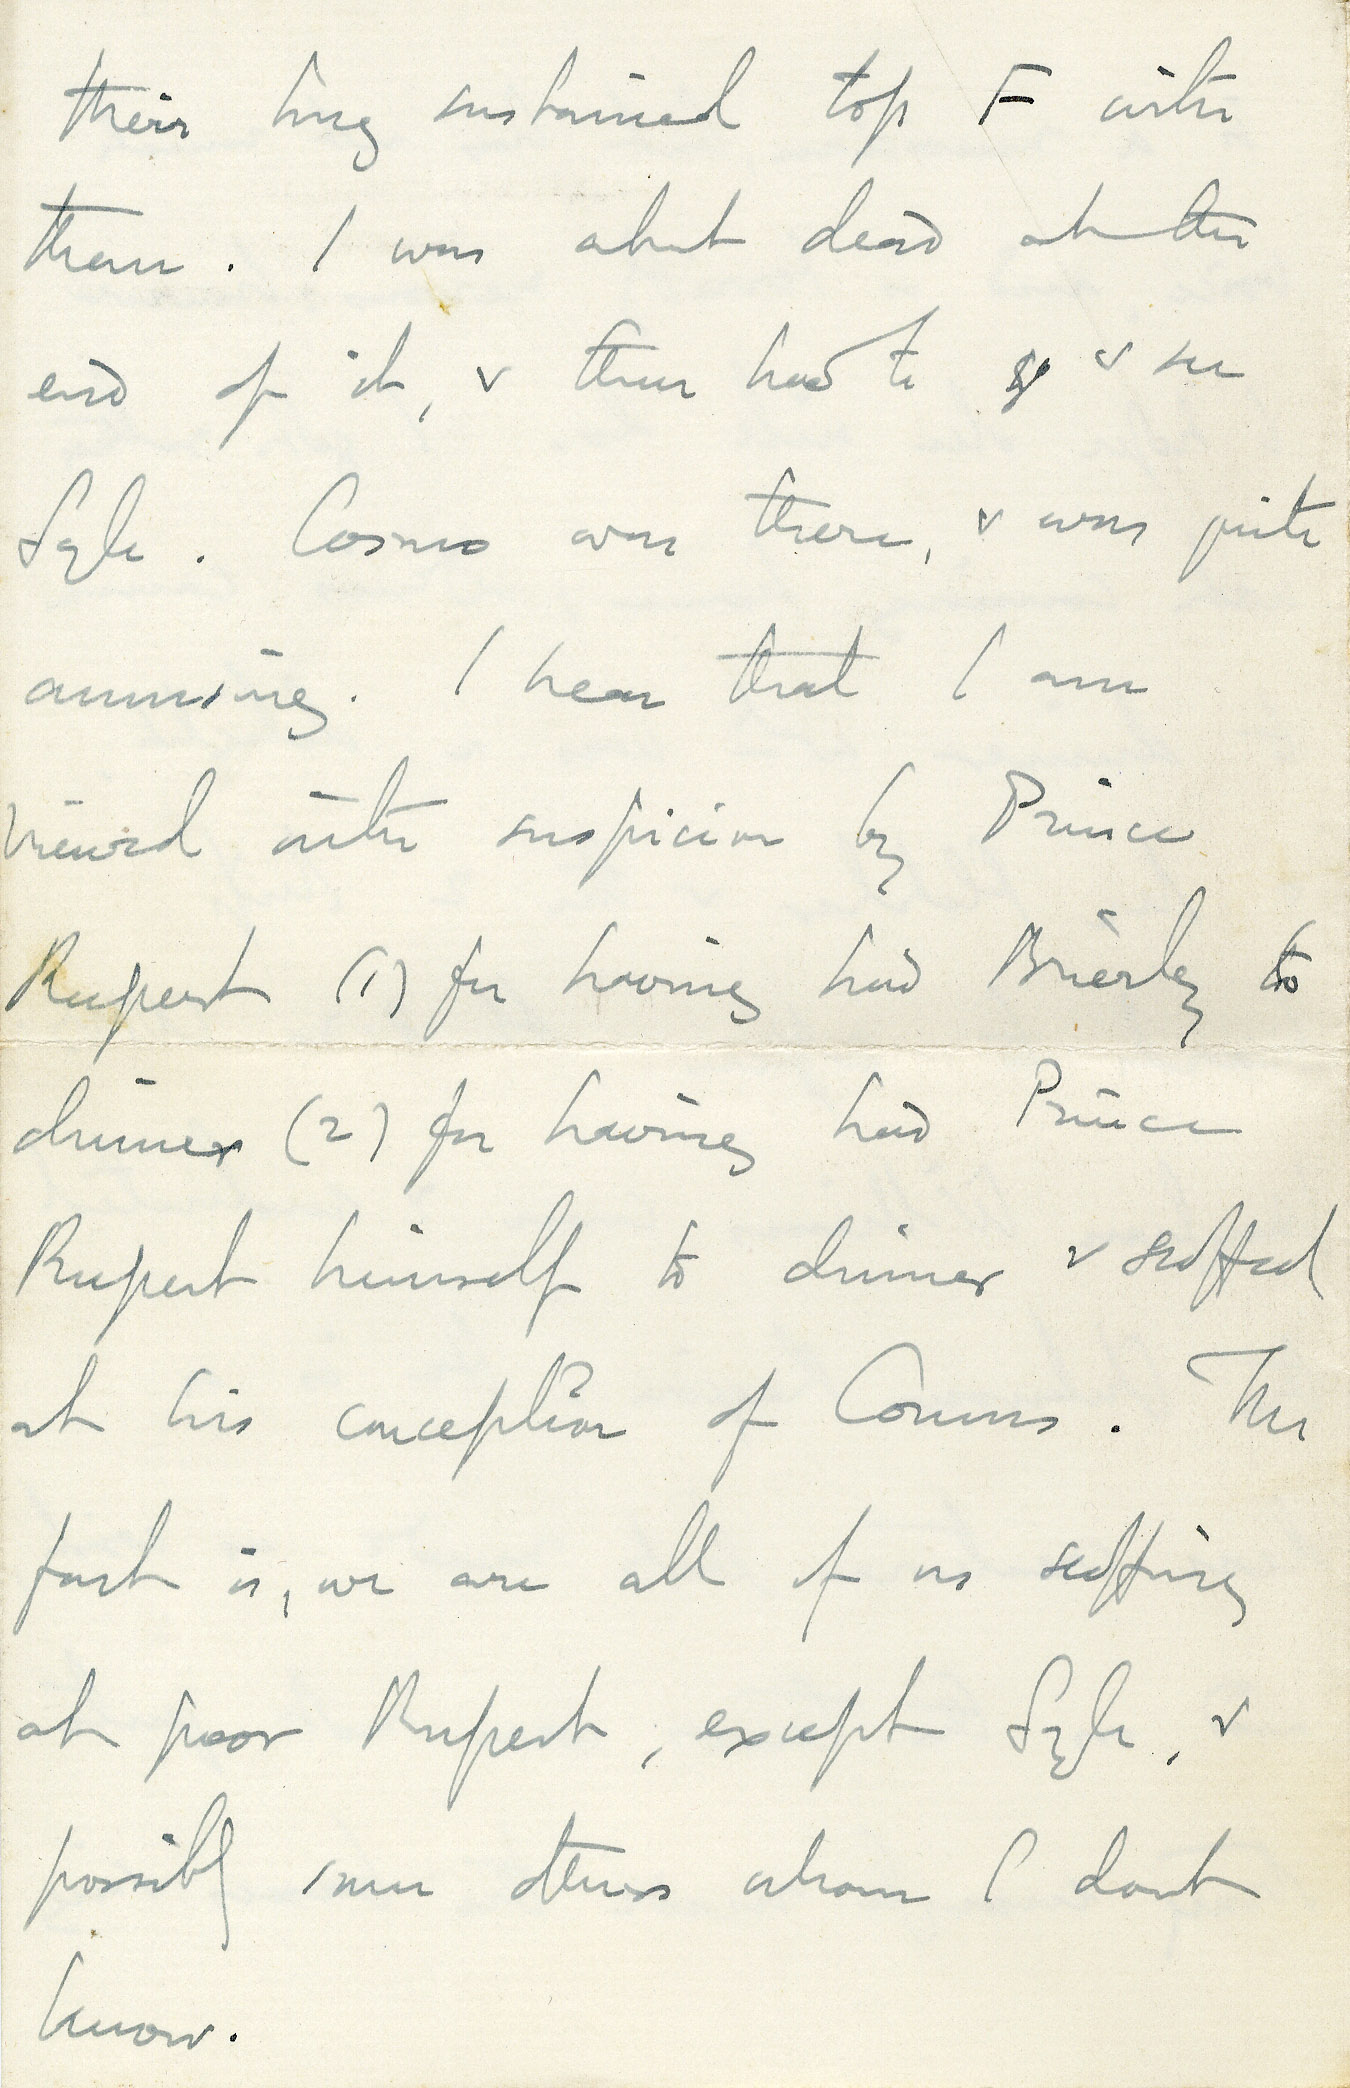 their long sustained top F with
them. I was about dead at the
end of it, & then had to go & see
Syle. Cosmo was there, & was quite
amusing. I hear that I am
viewed with suspicion by Prince
Rupert (1) for having had Brierley to
dinner (2) for having had Prince
Rupert himself to dinner & scoffed
at his conception of Comus. The
fact is, we are all of us scoffing
at poor Rupert, except Syle, &
possibly some others whom I dont
know.